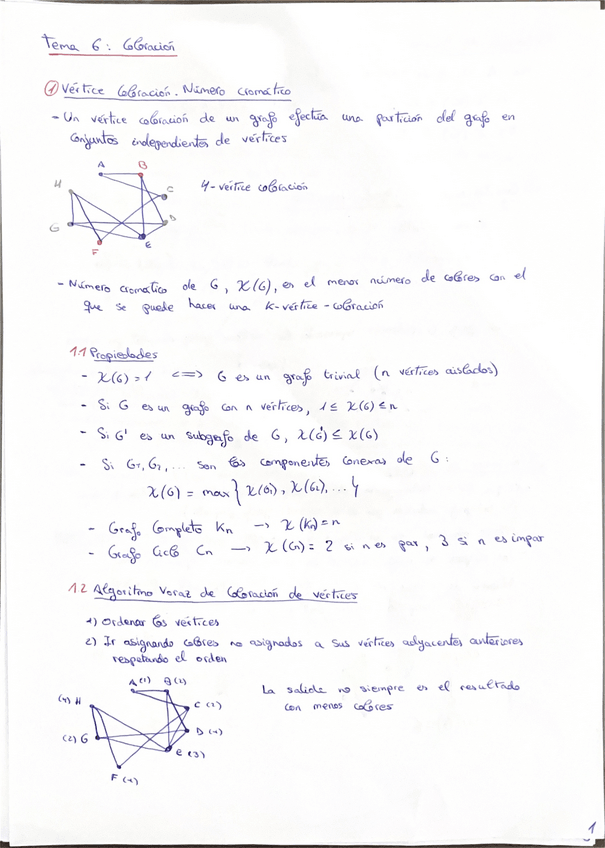 Tema 6: Coloración
1 Vértice Coloración. Número cromático
- Un vértice coloración de un grafo efectúa una partición del grafo en
conjuntos independientes de vértices
A B
H C
4-vértice coloración
G D
F E
- Número cromático de G, χ(G), es el menor número de colores con el
que se puede hacer una K-vértice-coloración
1.1 Propiedades
- χ(G) = 1 <=> G es un grafo trivial (n vértices aislados)
- Si G es un grafo con n vértices, 1 ≤ χ(G) ≤ n
- Si G' es un subgrafo de G, χ(G') ≤ χ(G)
- Si G1, G2, ... son las componentes conexas de G:
χ(G) = max { χ(G1), χ(G2), ... }
- Grafo Completo Kn → χ(Kn) = n
- Grafo Ciclo Cn → χ(Cn) = 2 si n es par, 3 si n es impar
1.2 Algoritmo Voraz de Coloración de vértices
1) Ordenar los vértices
2) Ir asignando colores no asignados a sus vértices adyacentes anteriores
respetando el orden
A (1) B (2)
La salida no siempre es el resultado
con menos colores
H C (2)
D (1)
(2) G
E (3)
F (1)
1